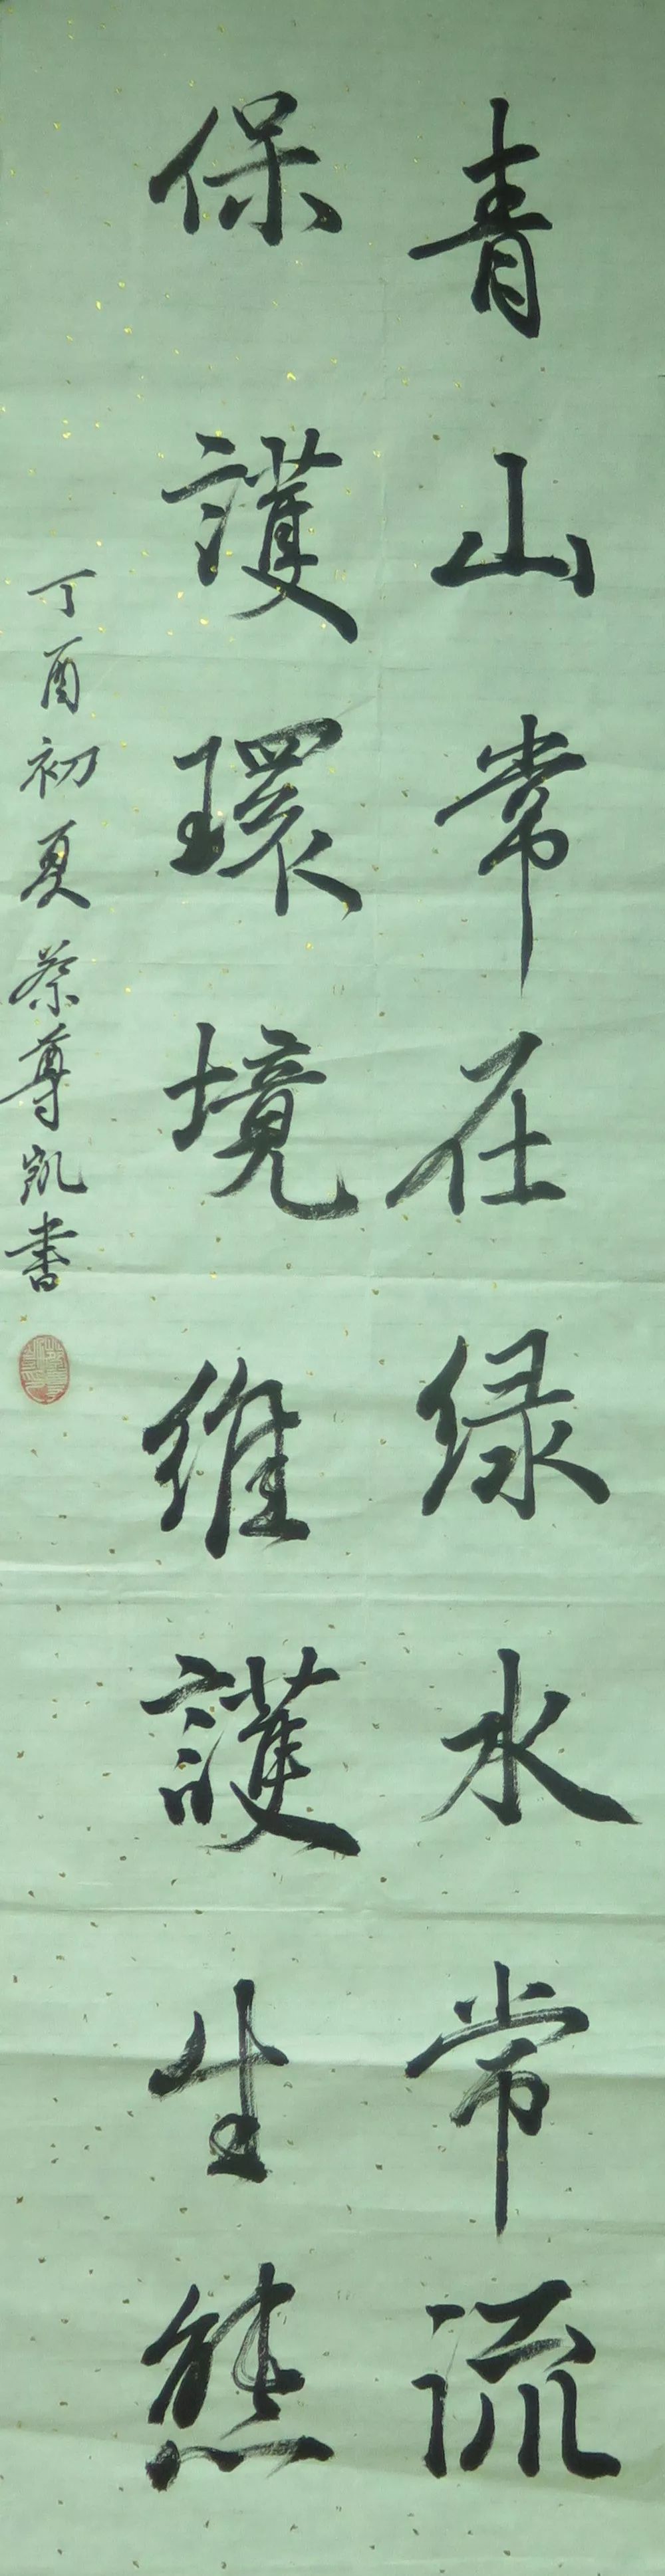 青山常在绿水常流
保護環境维護生態
丁酉初夏蔡尊凯書